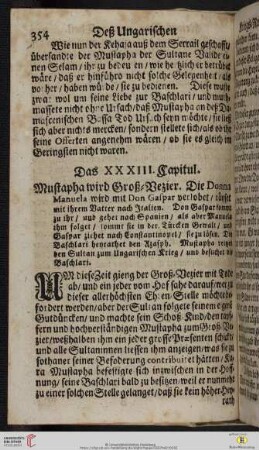 354 Deß Ungarischen
Wie nun der Kehaja auß dem Serrail geschafft/
übersandte der Mustapha der Sultane Valide ei-
nen Selam/ ihr zu bedeuten/ wie hertzlich er betrübt
wäre/ daß er hinführo nicht solche Gelegenheit/ als
vorher/ haben würde/ sie zu bedienen. Diese wuste
zwar wol um seine Liebe zur Baschlari/ und muth-
massete nicht ohne Ursach/ daß Mustapha an deß Da-
mascenischen Bassa Tod Ursach seyn möchte/ sie ließ
sich aber nichts mercken/ sondern stellete sich/ als ob ihr
seine Offerten angenehm wären/ ob sie es gleich im
Geringsten nicht waren.
Das XXXIII. Capitul.
Mustapha wird Groß-Vezier. Die Donna
Manuela wird mit Don Gaspar verlobet/
mit ihrem Vatter nach Italien. Don Gaspar
zu ihr/ und gehet nach Spanien/ als aber Manuela
ihm folget/ kommt sie in der Türcken Gewalt/ und
Gaspar ziehet nach Constantinopel/ sie zu lösen. Die
Baschlari heyrathet den Mustapha
den Sultan zum Ungarischen Krieg/ und besuchet die
Baschlari.
UM diese Zeit gieng der Groß-Vezier mit Tod
ab/ und ein jeder vom Hof sahe darauf/ wer zu
dieser allerhöchsten Ehren-Stelle möchte be-
fordert werden/ aber der Sultan folgete seinem eigenen
Gutdüncken/ und machte sein Schoß-Kind/ den tapf-
fern und hochverständigen Mustapha zum Groß-Ve-
zier/ weßhalben ihm ein jeder grosse Præsenten schickte/
und alle Sultaninnen liessen ihm anzeigen/ was sie zu
sothaner seiner Beförderung contribuiret hätten/ Ka-
ra Mustapha befestigte sich inzwischen in der Hoff-
nung/ seine Baschlari bald zu besitzen/ weil er nunmehr
zu einer solchen Stelle gelanget/ daß sie kein höher